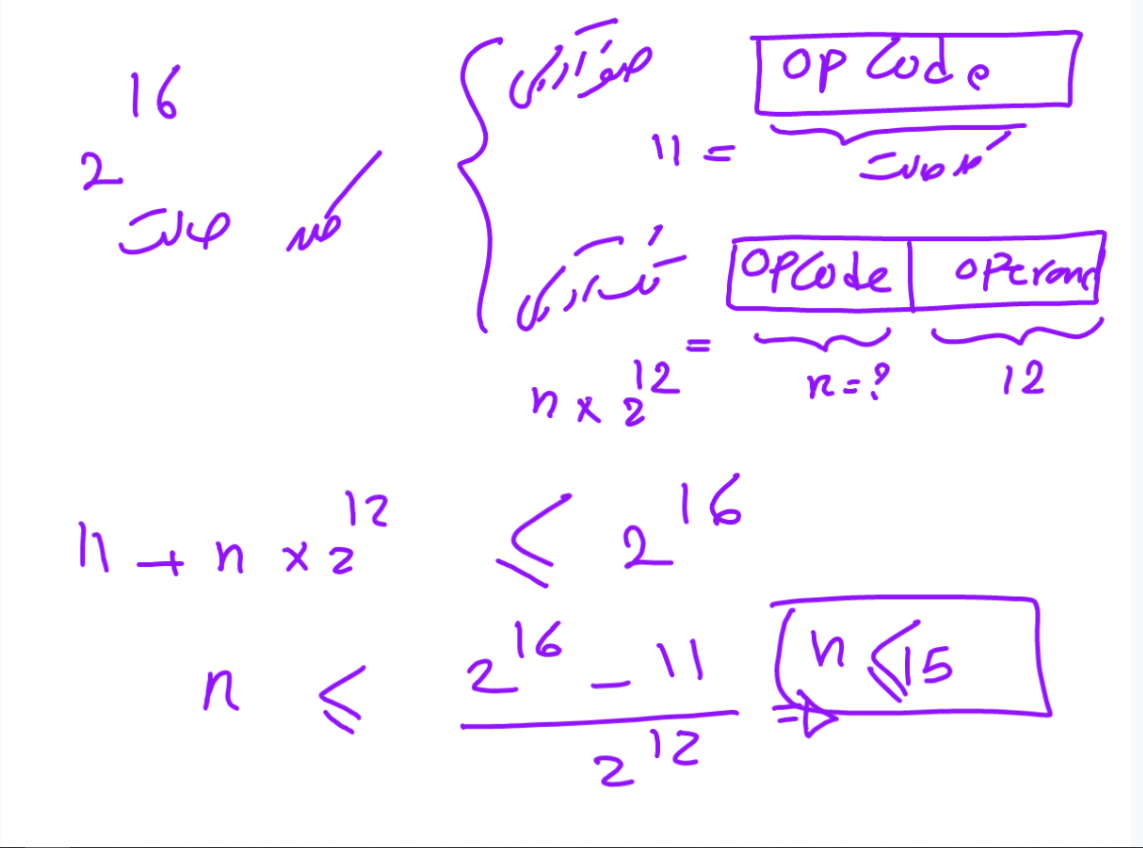 2^16 حالت
صفر آدرسی
OpCode
11 = حالت
تک آدرسی
OPCode | operand
n × 2^12 =
n = ?
12
11 + n × 2^12 ≤ 2^16
n ≤ (2^16 - 11) / 2^12 ⇒ n ≤ 15